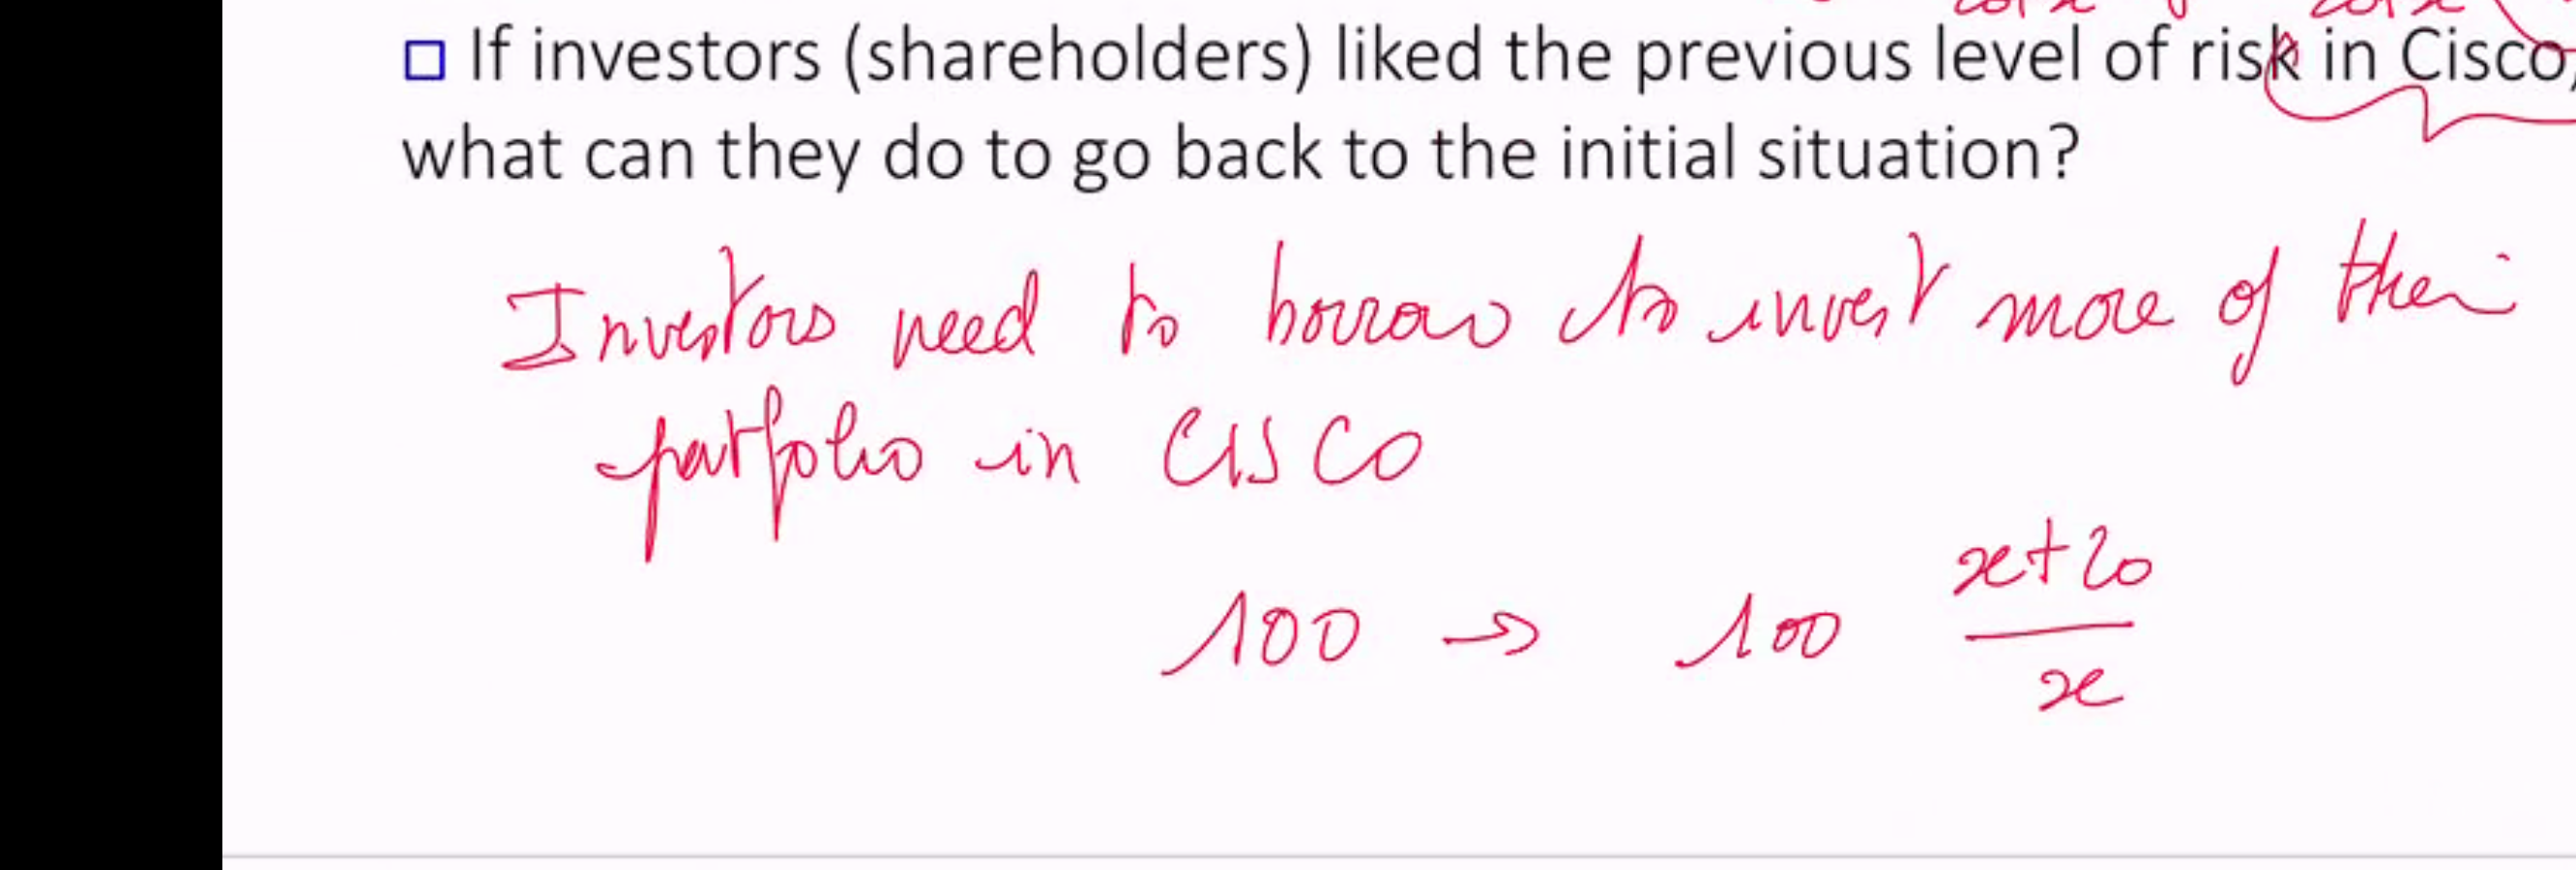 If investors (shareholders) liked the previous level of risk in Cisco,
what can they do to go back to the initial situation?
Investors need to borrow to invest more of their
portfolio in CISCO
x+20
100 → 100
x